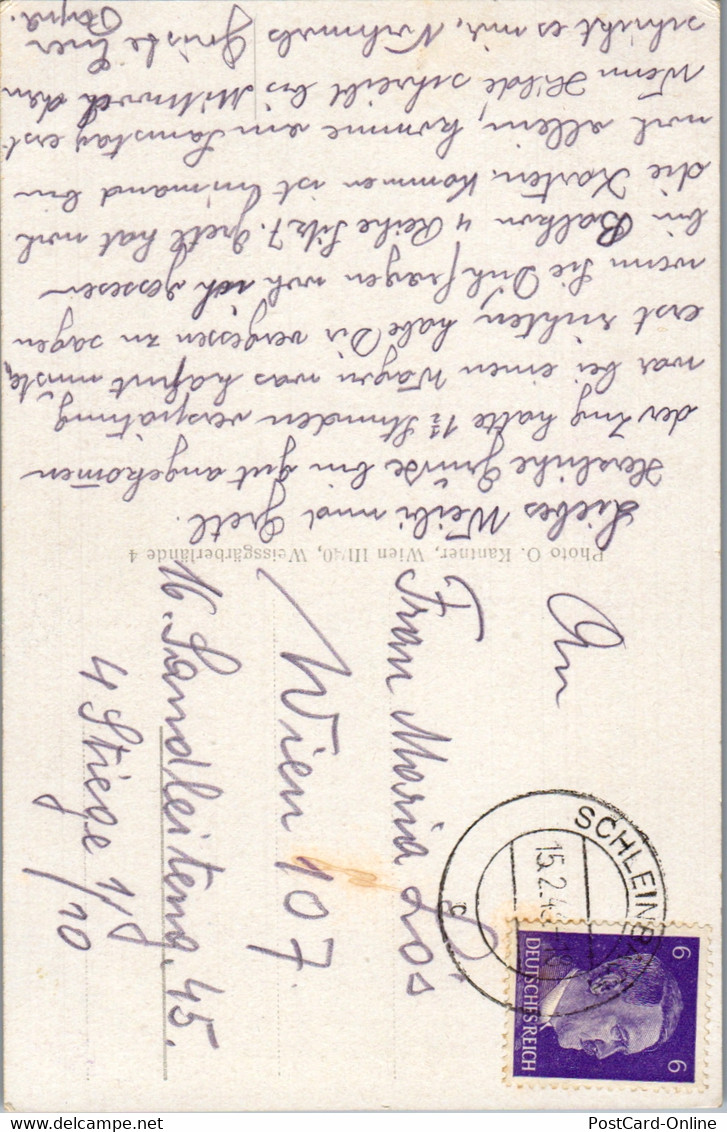 Liebes Weibi und Gretl.
Herzliche Grüße bin gut angekomen
der Zug hatte 1½ Stunden verspätung,
war bei einen Wagen was kaputt musste
erst richten, habe Dir vergessen zu sagen
wenn Sie Dich fragen wo ich gesessen
bin Balkon 4 Reihe Sitz 7. Gretl hat noch
die Karten. Kommen ist niemand bin
noch allein, komme am Samstag erst
Wenn Hilde schreibt bis Mittwoch den
schickt es mir, Nochmals Grüße Euer
Papa.
Photo O. Kantner, Wien III/40, Weissgärberlände 4
An
Frau Maria Los
Wien 107
16. Sandleiteng. 45.
4 Stiege 1/10
SCHLEINB
15.2.4
c
6 6
DEUTSCHES REICH
PostCard-Online